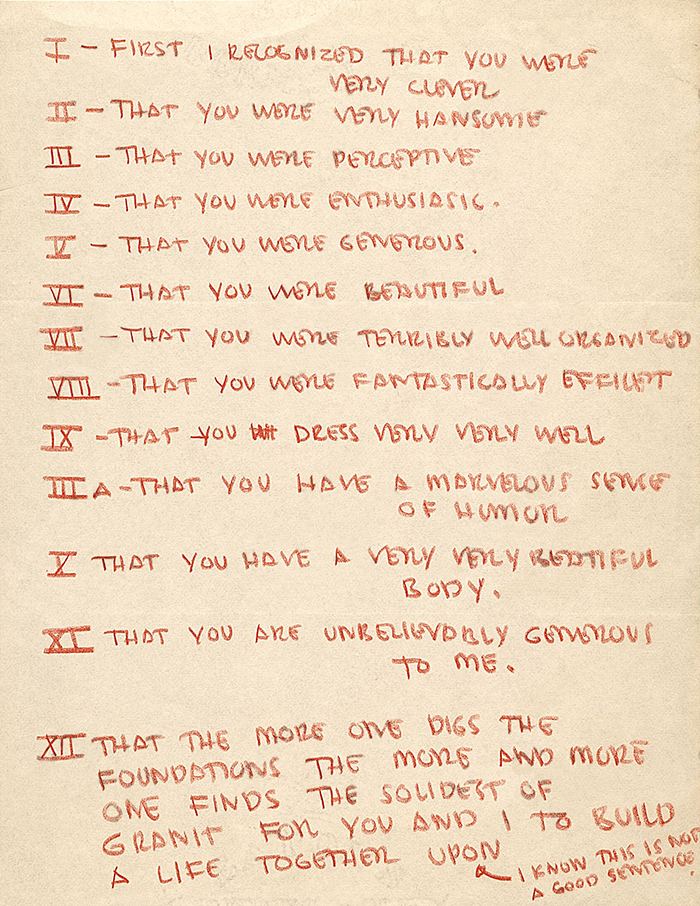 I - FIRST I RECOGNIZED THAT YOU WERE
VERY CLEVER
II - THAT YOU WERE VERY HANSOME
III - THAT YOU WERE PERCEPTIVE
IV - THAT YOU WERE ENTHUSIASIC.
V - THAT YOU WERE GENEROUS.
VI - THAT YOU WERE BEAUTIFUL
VII - THAT YOU WERE TERRIBLY WELL ORGANIZED
VIII - THAT YOU WERE FANTASTICALLY EFFILIEPT
IX - THAT YOU DRESS VERY VERY WELL
IIII A - THAT YOU HAVE A MARVELOUS SENSE
OF HUMOR
X THAT YOU HAVE A VERY VERY BEATIFUL
BODY.
XI THAT YOU ARE UNBELIEVABLY GENEROUS
TO ME.
XII THAT THE MORE ONE DIGS THE
FOUNDATIONS THE MORE AND MORE
ONE FINDS THE SOLIDEST OF
GRANIT FOR YOU AND I TO BUILD
A LIFE TOGETHER UPON
I KNOW THIS IS NOT
A GOOD SENTENCE.